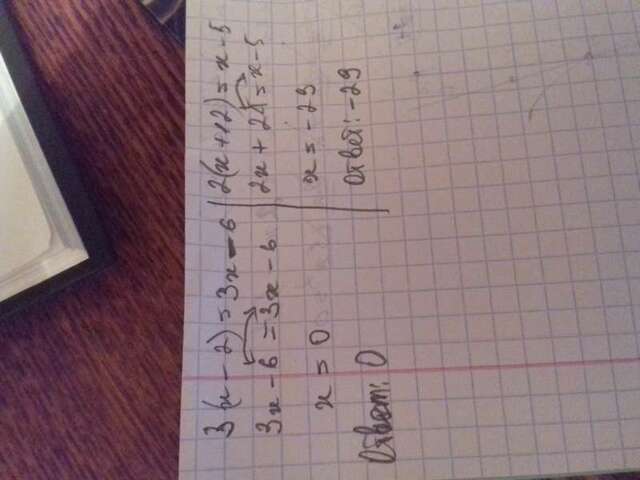 3(x - 2) = 3x - 6
3x - 6 = 3x - 6
x = 0
Ответ: 0
2(x + 12) = x - 5
2x + 24 = x - 5
x = - 29
Ответ: - 29